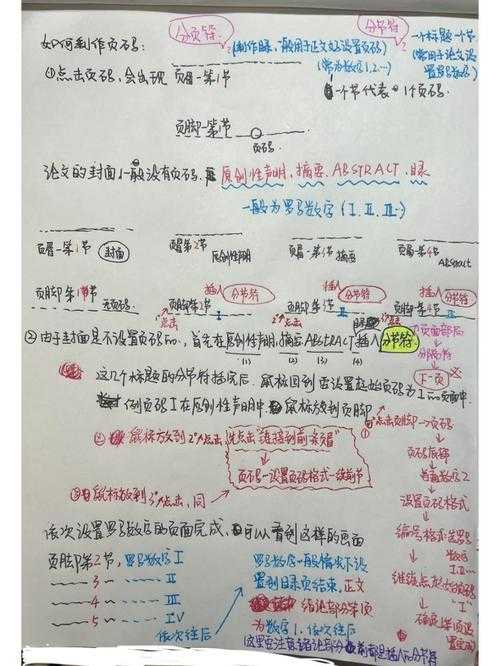 分页符
分节符
如何制作页码:
(制作目录,一般用于正文好设置页码)
(常为数字1.2…)
一个标题一个节
(常用于论文设
置罗马数字)
①点击页码,会出现
页眉-第1节
一个节代表一个页码.
页脚-第1节
页码
论文的封面一般没有页码.
原创性声明,摘要,ABSTRACT,目录
一般为罗马数字(I.II.III…)
页眉-第1节
封面
页眉第2节
原创性声明
页眉-第3节
摘要
页眉-第4节
Abstract
页脚第1节
无页码
页脚第2节
插入
分节符
1°点击
I
插入
分节符
2°点击
II
插入
分节符
页脚第4节
②由于封面是不设置页码的,首先在原创性声明,摘要ABSTRACT插入分节符
(1) (2) (3) (4)
页面布局
↓
分隔符
↓
下一页
这几个标题的分节符插完后,鼠标回到要设置起始页码为I的页面中.
例页码I在原创性声明中.鼠标放到页脚
点击页脚→页码
↓
页码底部
↓
普通数字2
↓
设置页码格式
↓
编号格式选罗马
数字
I.II…
↓
继续点起始页码
"I"
↓
②鼠标放到2°点击,先点击"链接到前一页眉"
↓
页码-设置页码格式-续前节
③鼠标放到3°点击,同
依次设置罗马数字的页面完成,可以看到这样的画面
页脚第2节,罗马数字I
3 II
4 III
5 IV
依次往后
罗马数字一般情况下设
置到目录页结束,正文
为数字1.依次往后